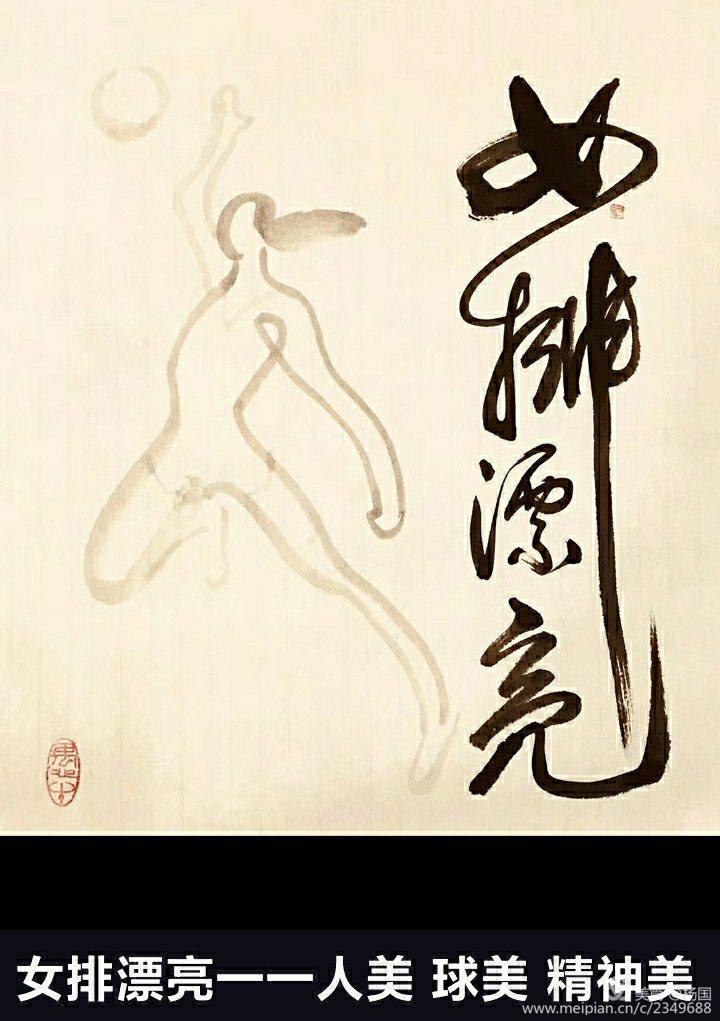 女排漂亮
女排漂亮一一人美 球美 精神美
www.meipian.cn/c/2349688